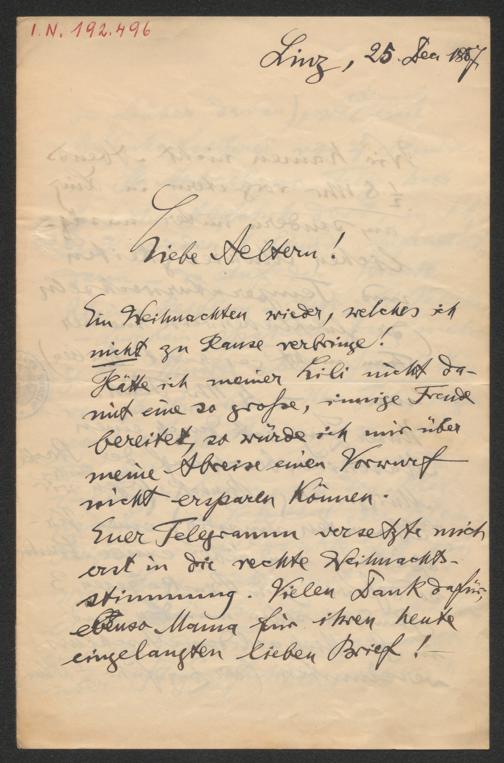 I. N. 192.496
Linz, 25. Dec 1887
Liebe Aeltern!
Ein Weihnachten wieder, welches ich
nicht zu Hause verbringe!
Hätte ich meiner Lili nicht da-
mit eine so große, innige Freude
bereitet, so würde ich mir über
meine Abreise einen Vorwurf
nicht ersparen können.
Euer Telegramm versetzte mich
erst in die rechte Weihnachts-
stimmung. Vielen Dank dafür,
ebenso Mama für ihren heute
eingelangten lieben Brief!